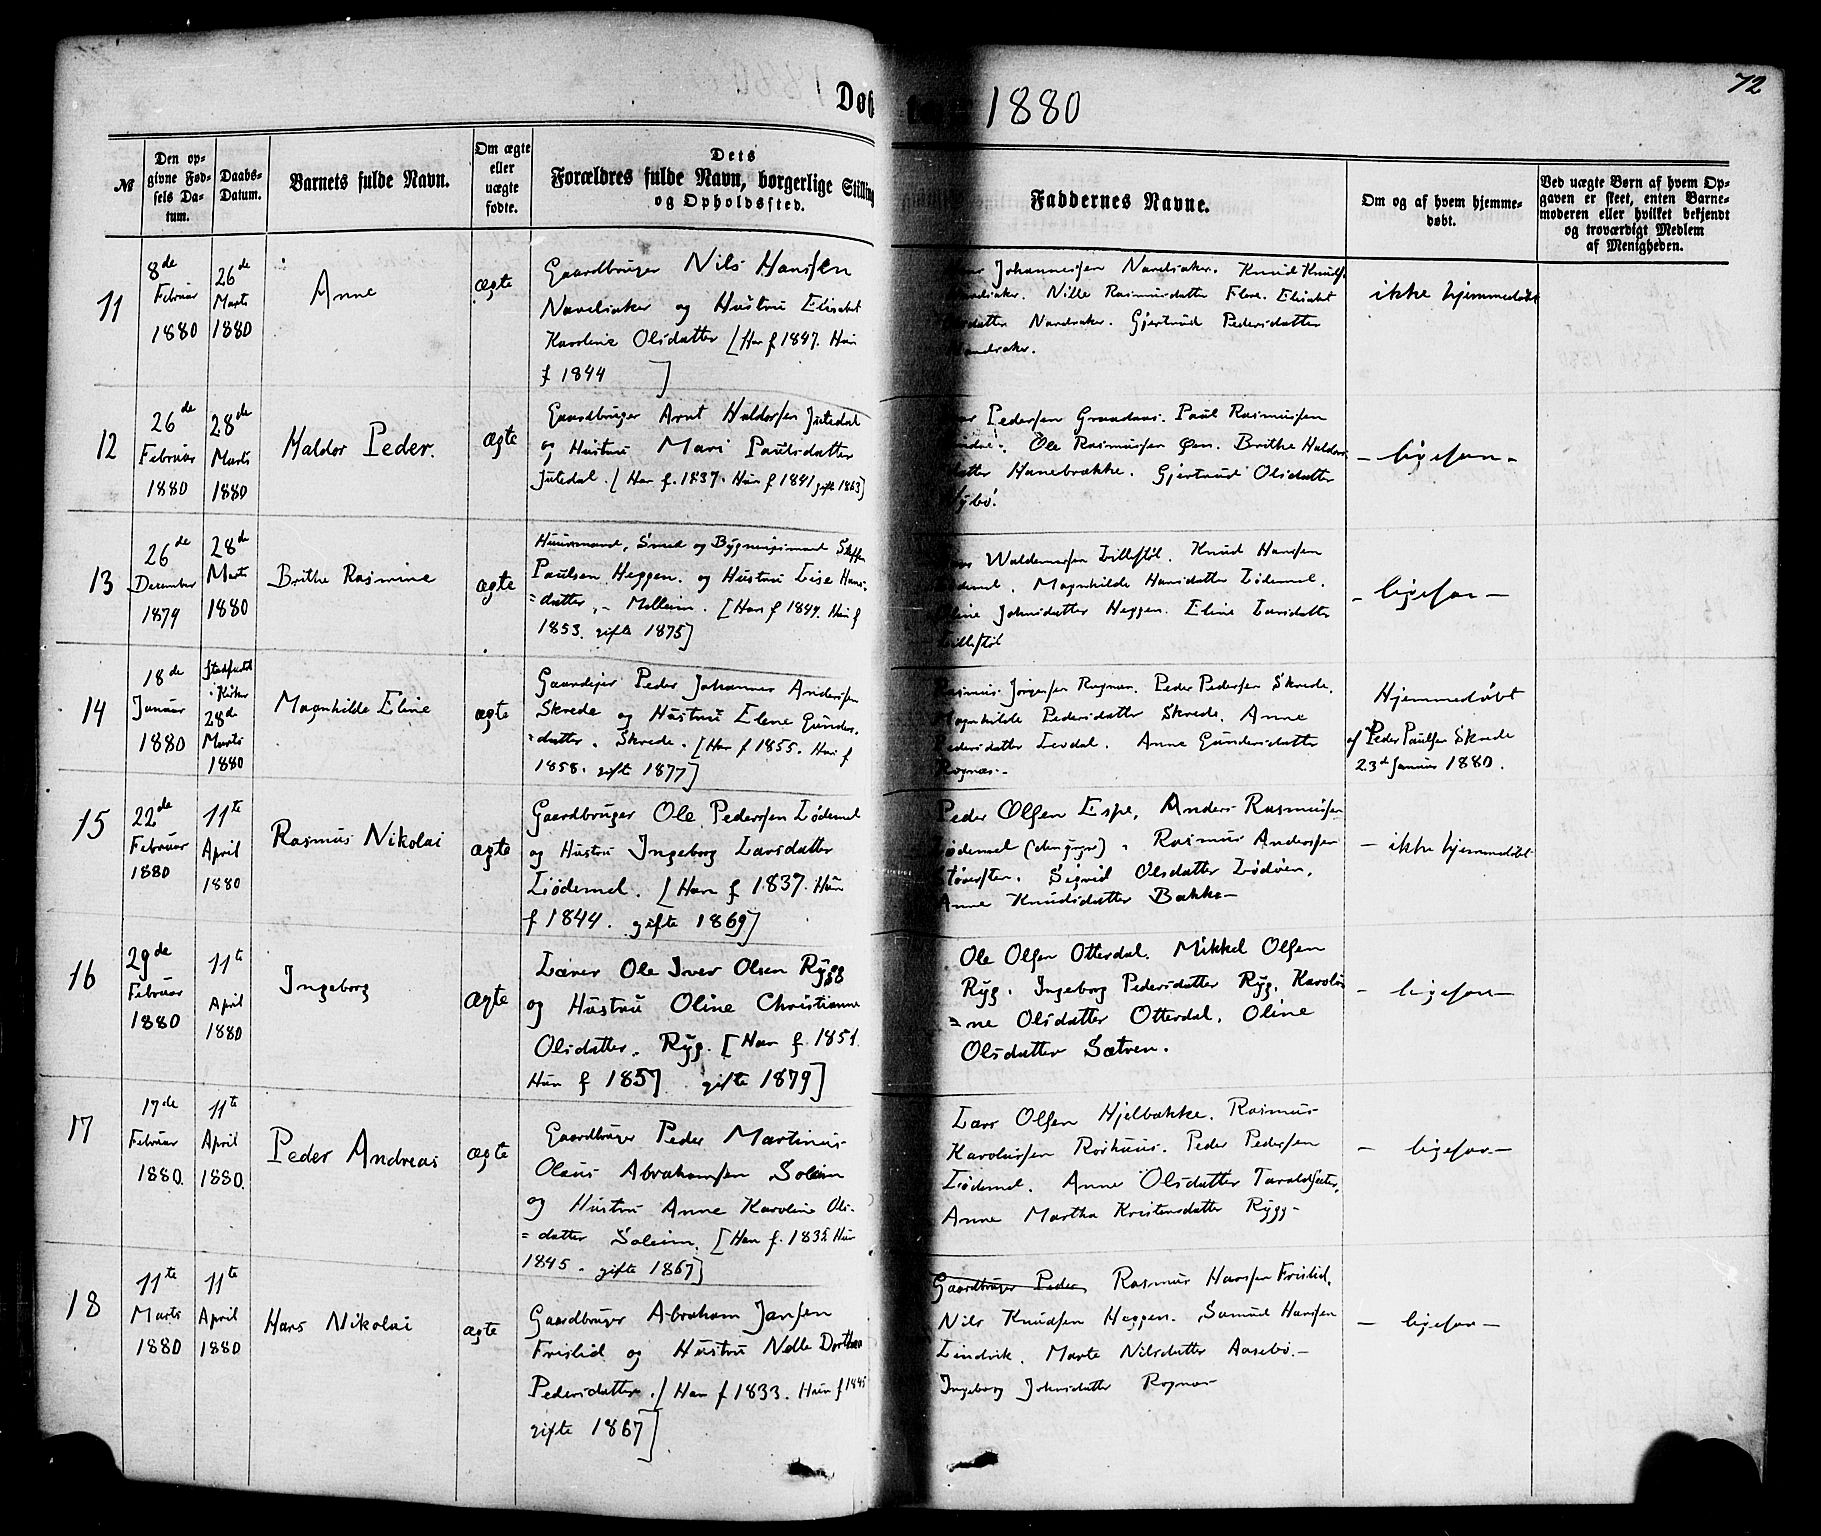 72
Døb te 1880
№
Den opgivne Fødsels Datum.
Daabs-Datum.
Barnets fulde Navn.
Om ægte eller uægte fødte.
Dets Forældres fulde Navn, borgerlige Stilling og Opholdssted.
Faddernes Navne.
Om og af hvem hjemmedøbt.
Ved uægte Børn af hvem Opgaven er skeet, enten Barnemoderen eller hvilket bekjendt og troværdigt Medlem af Menigheden.
11
8de Februar 1880
26de Marts 1880
Anne
ægte
Gaardbruger Nils Hanssen
og Hustru Elisabet
Karoline Olsdatter [Han f 1847. Hun
f 1844 ]
Johannessen Knud
Nille Rasmusdatter Elisabet
Gjertrud Pedersdatter
ikke hjemmedøbt
12
26de Februar 1880
28de Marts 1880
Haldor Peder.
ægte
Gaardbruger Arnt Haldorsen Jutedal
og Hustru Mari Paulsdatter
Jutedal. [Han f. 1837. Hun f 1841 gifte 1863]
Pedersen Paul Rasmussen
Ole Rasmussen Øen. Brithe Haldors
datter Hanebrække. Gjertrud Olsdatter
Nybø.
– ligesaa –
13
26de December 1879
28de Marts 1880
Brithe Rasmine
ægte
Huusmand, Smed og Bygningsmand Steffen
Paulsen Heggen. og Hustru Lise Hans-
=datter, – Molleim. [Han f 1847. Hun f
1853. gifte 1875]
Waldemarsen Lillestøl. Knud Hansen
Lødemel. Magnhilde Hansdatter Lødemel.
Johnsdatter Heggen. Eline Larsdatter
Lillestøl
– ligesaa –
14
18de Januar 1880
Stadfæstet i Kirken 28de Marts 1880
Magnhilde Eline
ægte
Gaardejer Peder Johannes Andersen
Skrede og Hustru Elene Gunders-
=datter. Skrede. [Han f 1855. Hun f
1858. gifte 1877]
Rasmus Jørgensen Rognæs. Peder Pedersen Skrede.
Magnhilde Pedersdatter Skrede. Anne
Pedersdatter Anne Gundersdatter
Rognæs.–
Hjemmedøbt
af Peder Paulsen Skrede
23de Januar 1880.
15
22de Februar 1880
11te April 1880
Rasmus Nikolai
ægte
Gaardbruger Ole Pedersen Lødemel
og Hustru Ingeborg Larsdatter
Lødemel. [Han f 1837. Hun
f 1844. gifte 1869]
Peder Olsen Espe, Anders Rasmussen
Lødemel (den yngre). Rasmus Andersen
Sigrid Olsdatter Lødøen,
Anne Knudsdatter Bakke–
– ikke hjemmedøbt
16
29de Februar 1880
11te April 1880
Ingeborg
ægte
Lærer Ole Iver Olsen Rygg
og Hustru Oline Christianne
Olsdatter. Ryg. [Han f. 1851.
Hun f 1857 gifte 1879]
Ole Olsen Otterdal. Mikkel Olsen
Ryg. Ingeborg Pedersdatter Ryg. Karoli
=ne Olsdatter Otterdal, Oline
Olsdatter Sætren.
– ligesaa –
17
17de Februar 1880.
11te April 1880.
Peder Andreas
ægte
Gaardbruger Peder Martinus
Olaus Abrahamsen Soleim
og Hustru Anne Karoline Ols-
=datter Soleim. [Han f. 1832 Hun
1845. gifte 1867]
Lars Olsen Hjelbakke. Rasmus
Karolussen Rorhuus. Peder Pedersen
Lødemel. Anne Olsdatter Taraldsæter,
Anne Martha Kristensdatter Rygg–
– ligesaa –
18
11te Marts 1880
11te April 1880
Hans Nikolai
ægte
Gaardbruger Abraham Jansen
Frislid og Hustru Nelle Dorthea
Pedersdatter. [Han f 1833. Hun f 1845
gifte 1867]
Gaardbruger Peder Rasmus Hansen Frislid.
Nils Knudsen Heggen. Samuel Hansen
Lindvik. Marte Nilsdatter Aasebø.–
Ingeborg Johnsdatter Rognæs
– ligesaa –